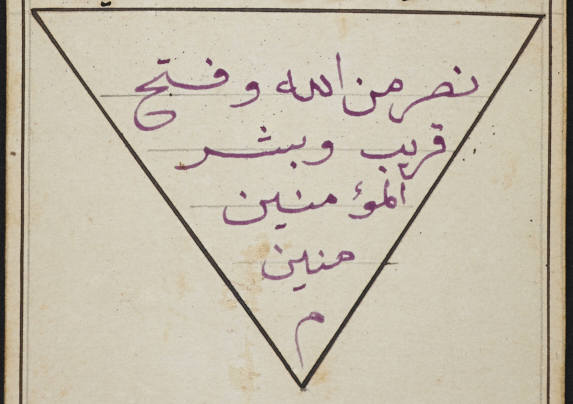 نصر من الله و فتح
قريب وبشر
المؤ منين
منين
م